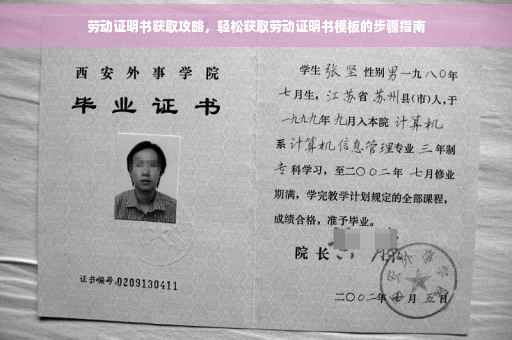 劳动证明书获取攻略，轻松获取劳动证明书模板的步骤指南
西安外事学院
毕业证书
证书编号:0209130411
学生 张坚 性别 男 一九八〇年
七月生，江苏省 苏州县(市)人，于
一九九九年九月入本院 计算机
系 计算机信息管理专业 三年制
专科学习，至二〇〇二年 七月修业
期满，学完教学计划规定的全部课程，
成绩合格，准予毕业。
院长
二〇〇二年 月 五日